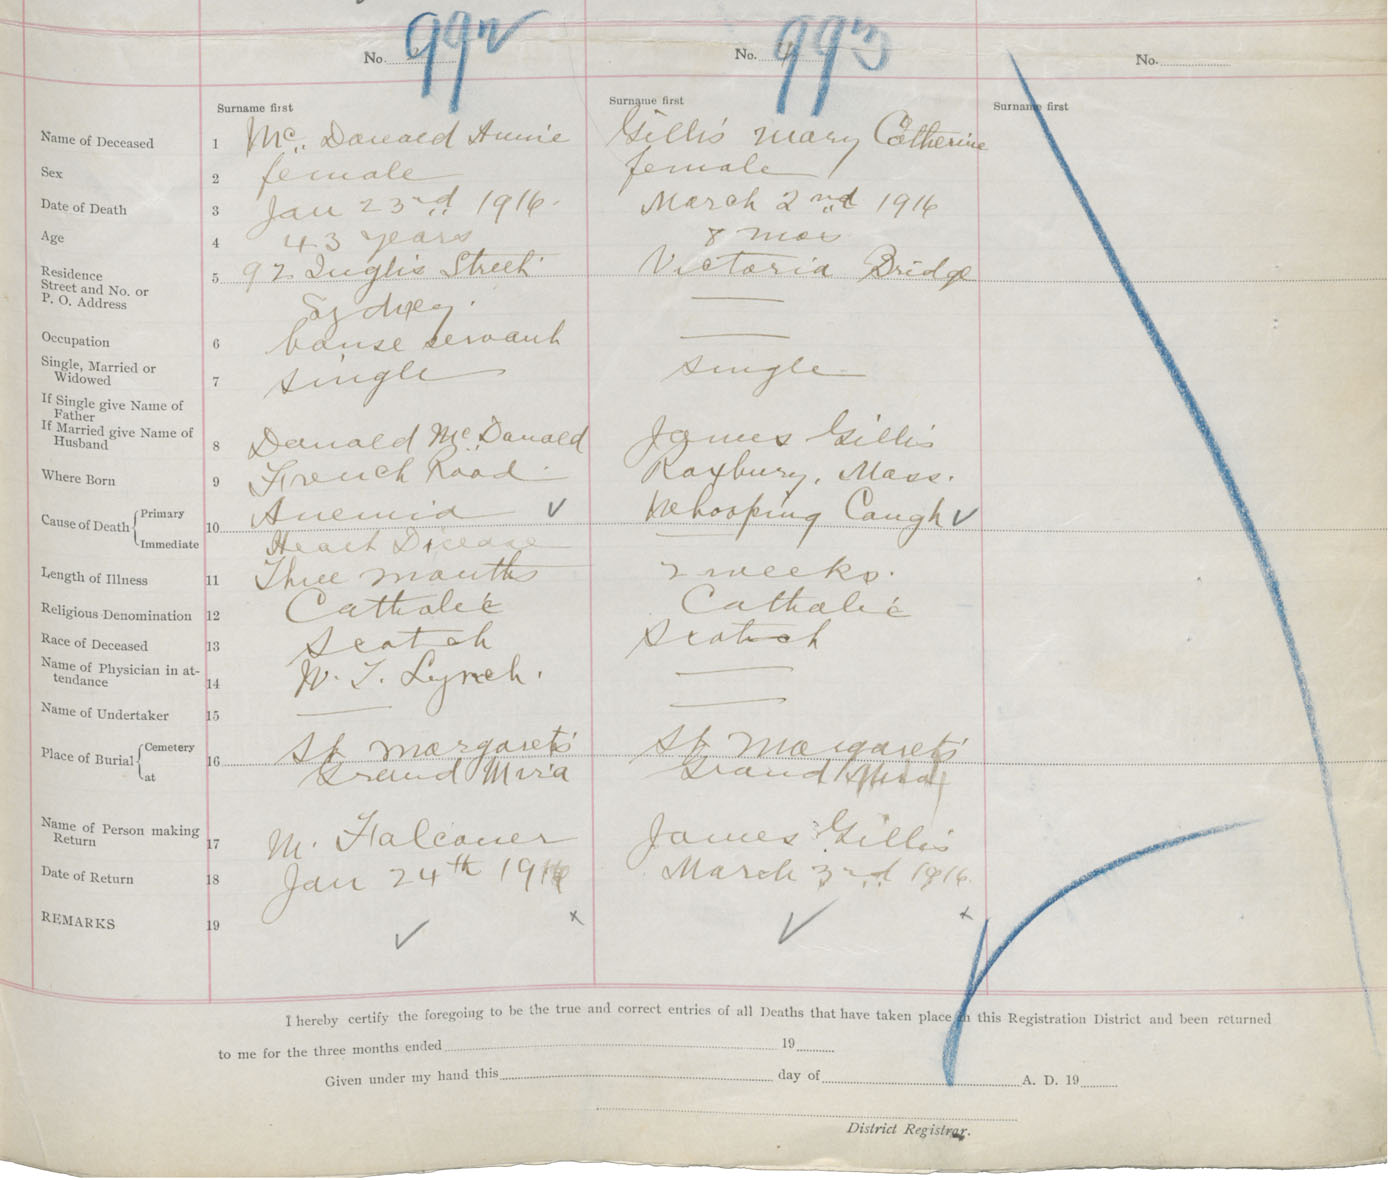 No. 992
No. 993
No.
Surname first
Surname first
Surname first
Name of Deceased 1 Mc. Donald Annie Gillis Mary Catherine
Sex 2 female female
Date of Death 3 Jan 23rd 1916. March 2nd 1916
Age 4 43 years 8 mos
Residence
Street and No. or
P. O. Address
5 92 Inglis Street Victoria Bridge
Sydney.
Occupation 6 house servant
Single, Married or
Widowed 7 single single
If Single give Name of
Father
If Married give Name of
Husband 8 Donald Mc. Donald James Gillis
Where Born 9 French Road Roxbury, Mass.
Cause of Death { Primary
Immediate
10 Anemia ✓ Whooping Cough ✓
Heart Disease
Length of Illness 11 Three months 2 weeks.
Religious Denomination 12 Catholic Catholic
Race of Deceased 13 Scotch Scotch
Name of Physician in at-
tendance 14 W. T. Lynch.
Name of Undertaker 15
Place of Burial { Cemetery
at
16 St Margaret's St Margaret's
Grand Mira Grand Mira
Name of Person making
Return 17 M. Falconer James Gillis
Date of Return 18 Jan 24th 1916 March 3rd 1916.
REMARKS 19 ✓ x ✓ x
I hereby certify the foregoing to be the true and correct entries of all Deaths that have taken place in this Registration District and been returned
to me for the three months ended 19
Given under my hand this day of A. D. 19
District Registrar.